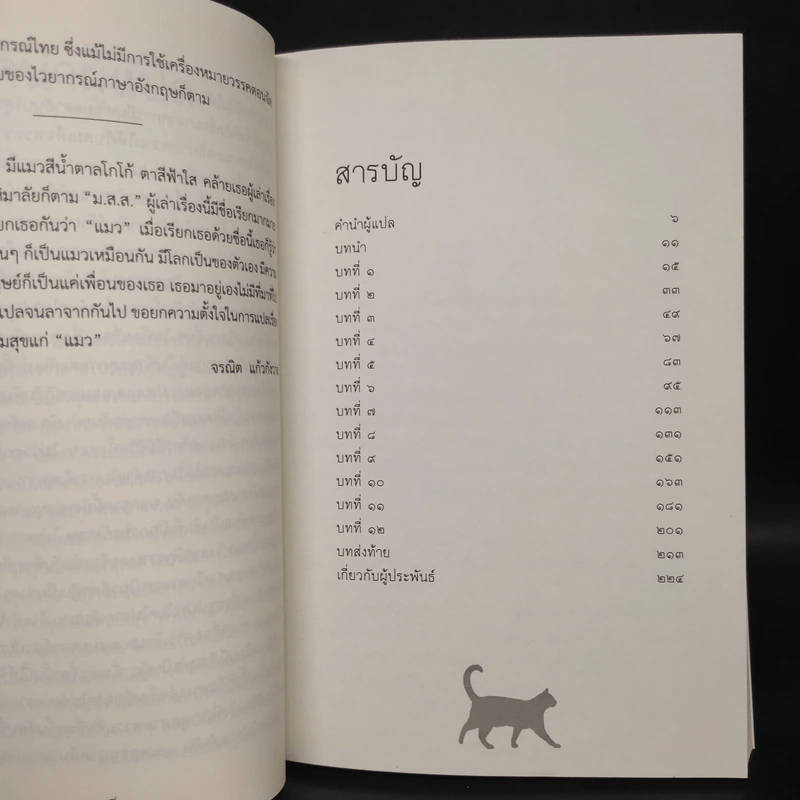 ซึ่งแม้ไม่มีการใช้เครื่องหมายวรรคตอนจัด
ของไวยากรณ์ภาษาอังกฤษก็ตาม
มีแมวสีน้ำตาลโกโก้ ตาสีฟ้าใส คล้ายเธอผู้เล่าเรื่อง
หิมาลัยก็ตาม “ม.ส.ส.” ผู้เล่าเรื่องนี้มีชื่อเรียกมากมาย
ยกเธอกันว่า “แมว” เมื่อเรียกเธอด้วยชื่อนี้เธอก็รู้ว่า
นๆ ก็เป็นแมวเหมือนกัน มีโลกเป็นของตัวเอง มีความ
ษย์ก็เป็นแค่เพื่อนของเธอ เธอมาอยู่เองไม่มีที่มาที่ไป
แปลจนลาจากกันไป ขอยกความตั้งใจในการแปลเรื่อง
มสุขแก่ “แมว”
จรณิต
สารบัญ
คำนำผู้แปล ๖
บทนำ ๑๑
บทที่ ๑ ๑๕
บทที่ ๒ ๓๓
บทที่ ๓ ๔๙
บทที่ ๔ ๖๗
บทที่ ๕ ๘๓
บทที่ ๖ ๙๕
บทที่ ๗ ๑๑๓
บทที่ ๘ ๑๓๑
บทที่ ๙ ๑๕๑
บทที่ ๑๐ ๑๖๓
บทที่ ๑๑ ๑๘๑
บทที่ ๑๒ ๒๐๑
บทส่งท้าย ๒๑๓
เกี่ยวกับผู้ประพันธ์ ๒๒๔